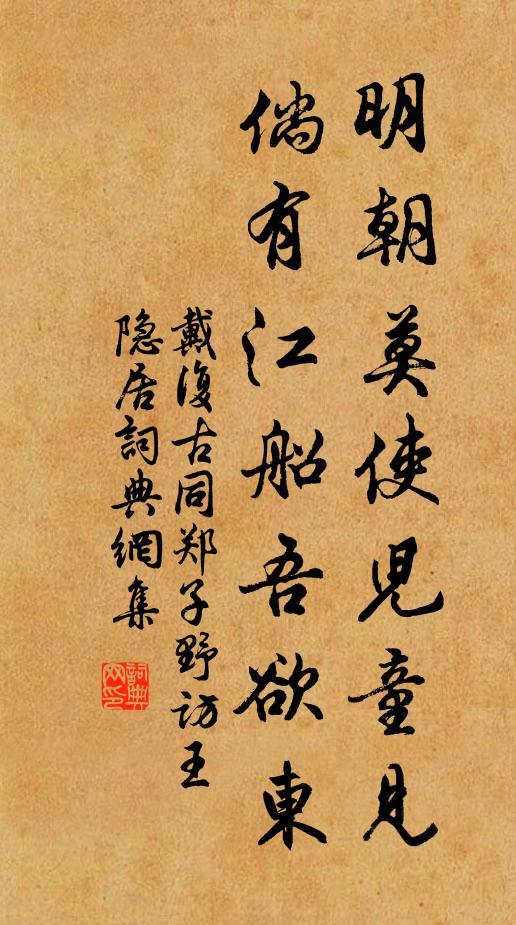 明朝莫使児童見
倘有江船吾欲東
戴復古同郑子野訪王
隐居詞典網集
詞典
网印